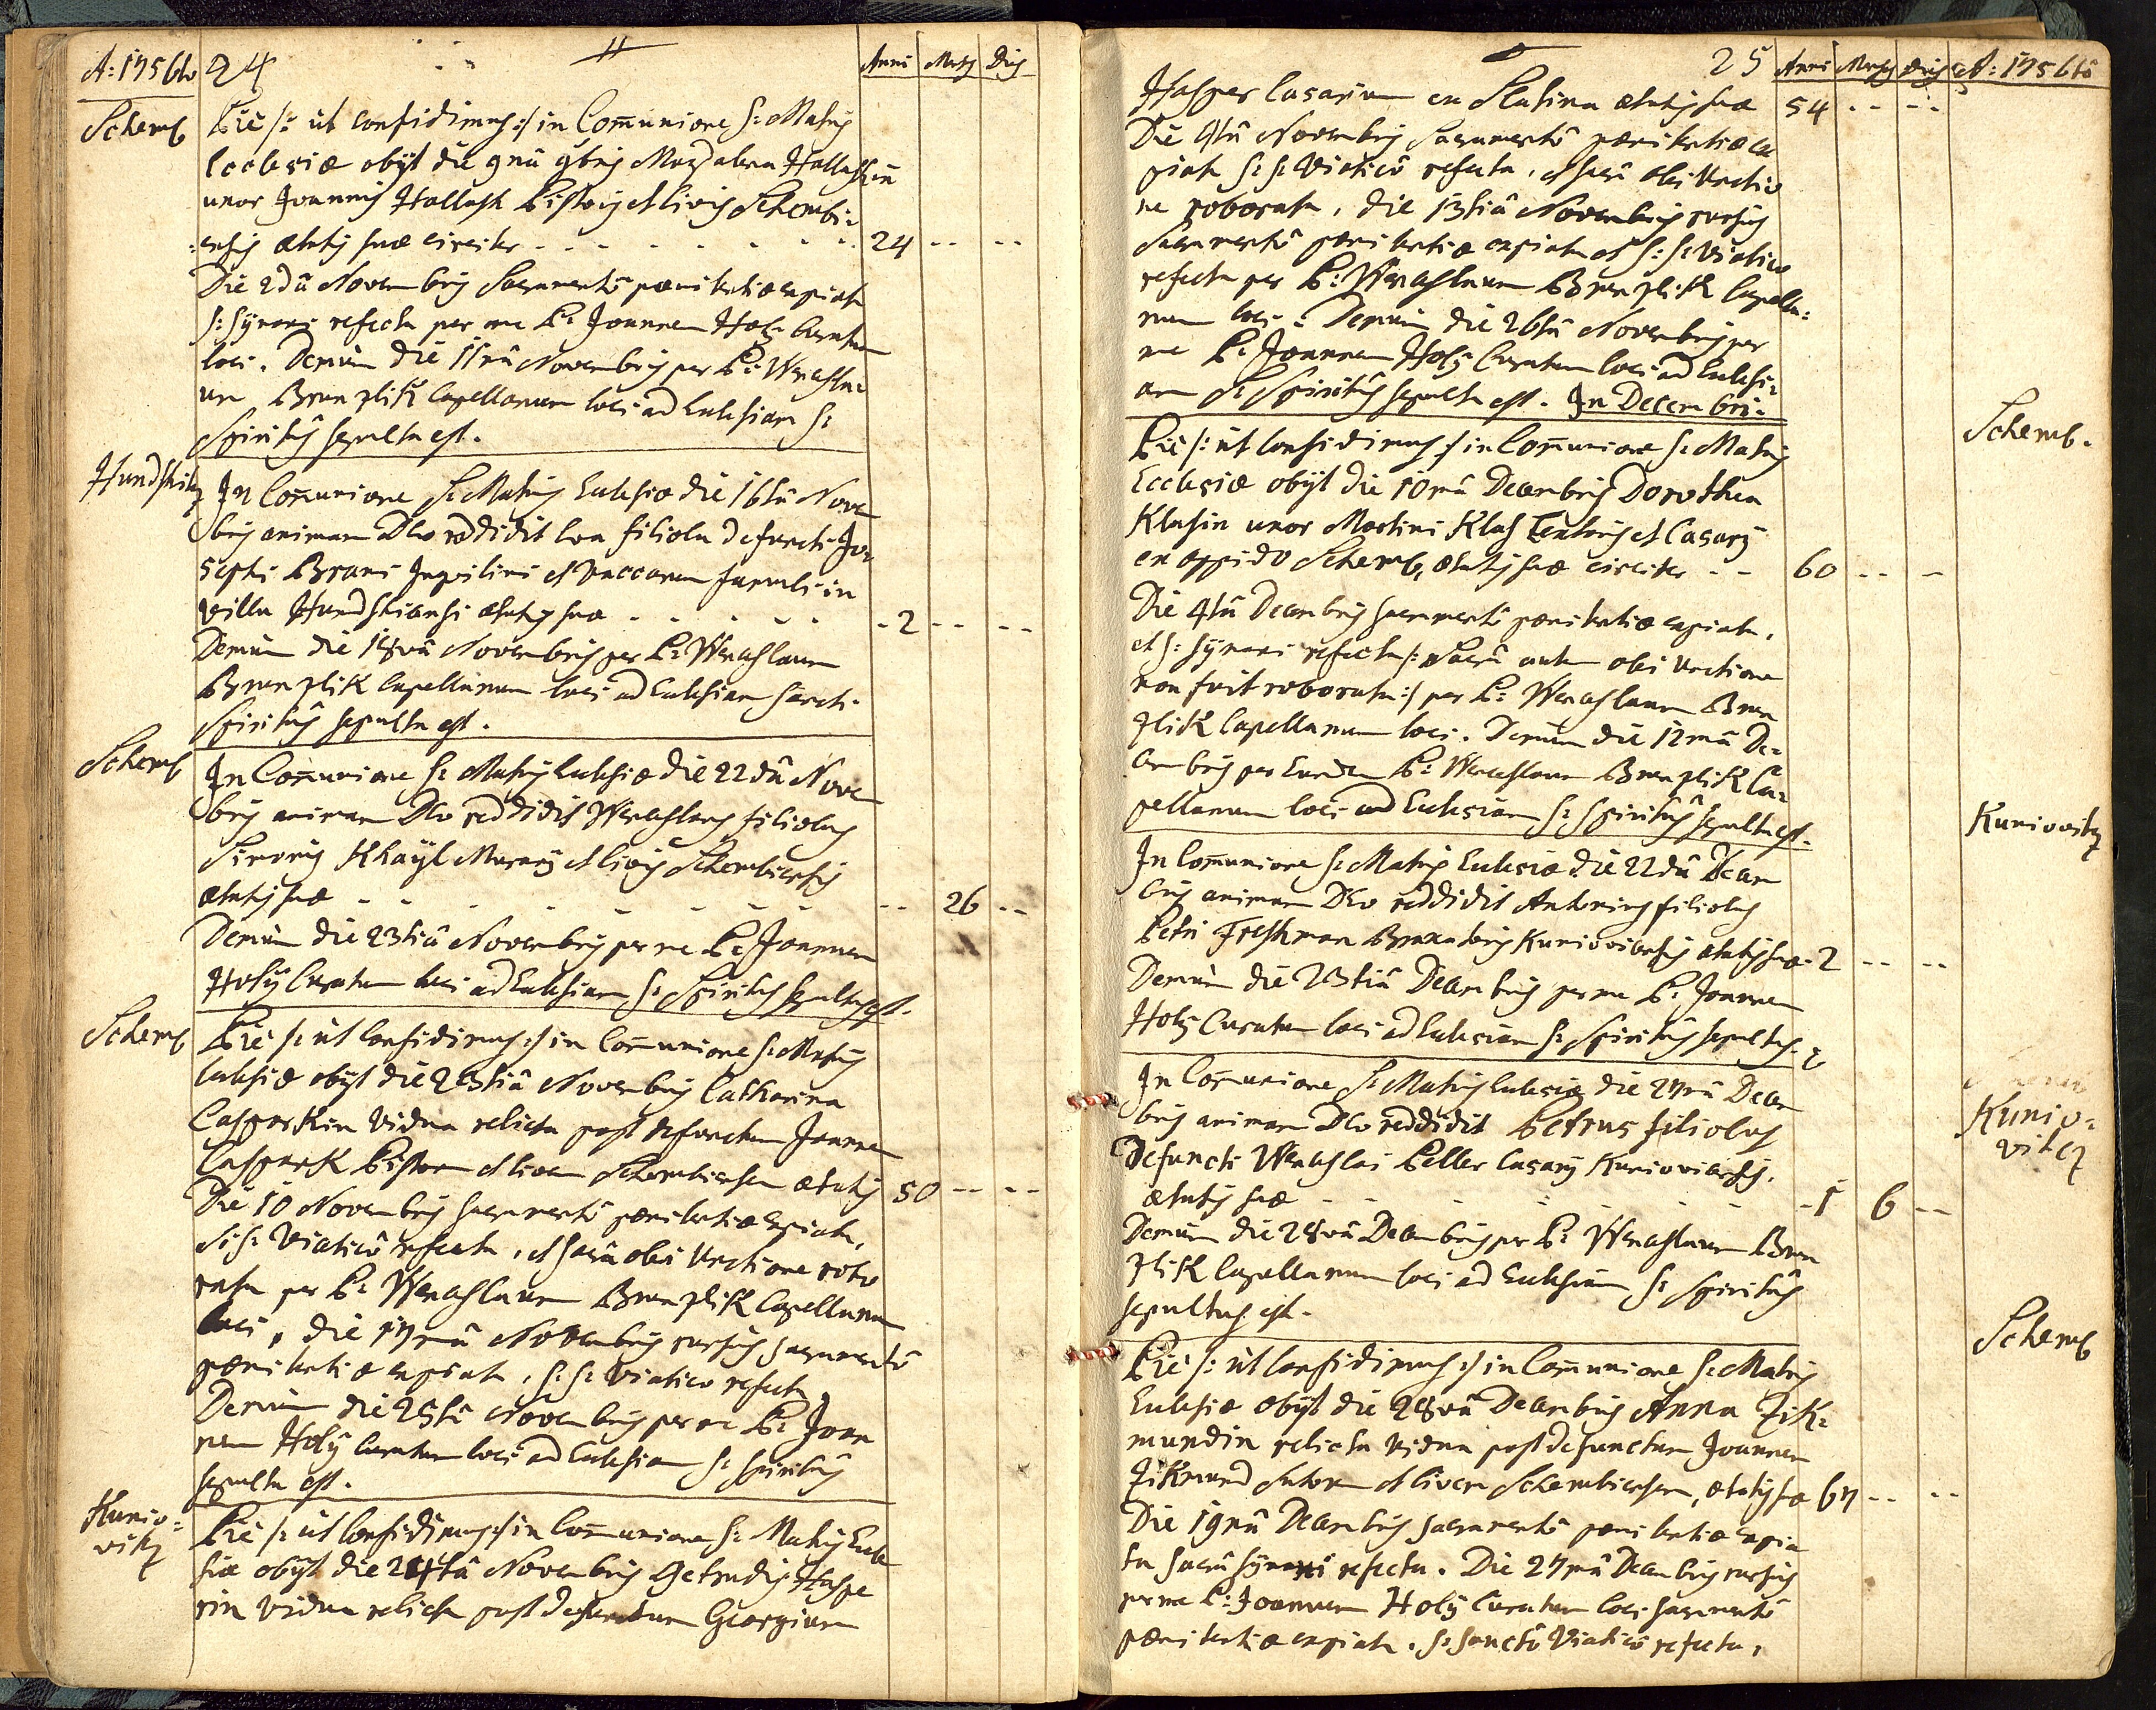 A: 1756to 24 Anni Mensis Dies
Schemb Pie /: ut confidimus :/ in Communione S: Matris
Ecclesiæ obijt die 9nâ 9bris Magdalena Hallaschin
uxor Joannis Hallasch Pistoris et Civis Schembi=
:ensis ætatis suæ circiter - - - - - - 24 -- --
Die 2dâ Novembris Sacramentô pœnitentiæ expiata
S: Synaxi refecta per me P: Joannem Holy Curatum
loci. Demùm die 11mâ Novembris per P: Wenczesla=
um Brenzlik Capellanum loci ad Ecclesiam S:
Spiritûs sepulta est.
Hundschitz In Communione S: Matris Ecclesiæ die 16tâ Novem
bris animam Deo reddidit filiola defuncti Jo=
sephi Inquilini et Vaccarum famuli in
villa ætatis suæ - - - - - 2 -- --
Demùm die 18vâ Novembris per P: Wenceslaum
Brenzlik Capellanum loci ad Ecclesiam Sancti
Spiritûs sepulta est.
Schemb In Communione S: Matris Ecclesiæ die 22dâ Novem
bris animam Deo reddidit Wenceslaus filiolus
Simonis Khayl Murarij et Civis Schembiensis
ætatis suæ - - - - - - - -- 26 --
Demùm die 23tiâ Novembris per me P: Joannem
Holy Curatum loci ad Ecclesiam S: Spiritûs sepultus est.
Schemb Pie /: ut confidimus :/ in Communione S: Matris
Ecclesiæ obijt die 23tiâ Novembris Catharina
Casparkin vidua relicta post defunctum Joannem
Caspark Pistorem et Civem Schembiensem ætatis 50 -- --
Die 10 Novembris Sacramentô pœnitentiæ expiata,
S: S: Viaticô refecta, et Sacrâ olei Unctione robo
rata per P: Wenceslaum Brenzlik Capellanum
loci, die 17mâ Novembris rursus Sacramentô
pœnitentiæ expiata, S: S: Viatico refecta,
Demùm die 25tâ Novembris per me P: Joan
nem Holy Curatum loci ad Ecclesiam S: Spiritûs
sepulta est.
Kunio=
vitz Pie /: ut confidimus :/ in Communione S: Matris Eccle
siæ obijt die 24tâ Novembris Getrudis Haspe
rin vidua relicta post defunctum Georgium
25 Anni Mensis Dies A: 1756tô
Hasper Casarium en Slatina ætatis suæ 54 -- --
Die 9tâ Novembris Sacramentô pœnitentiæ ex
piata S: S: Viaticô refecta, et Sacrâ olei Unctio
ne roborata, die 13tiâ Novembris rursus
Sacramentô pœnitentiæ expiata et S: S: Viatico
refecta per P: Wenceslaum Brenzlik Capella=
num loci. Demùm die 26tâ Novembris per
me P: Joannem Holy Curatum loci ad Ecclesi=
am S: Spiritûs sepulta est. In Decembri.
Schemb. Pie /: ut confidimus :/ in Communione S: Matris
Ecclesiæ obijt die 10mâ Decembris Dorothea
Klasin uxor Martini Klas Textoris et Casarij
en oppido Schemb, ætatis suæ circiter -- 60 -- -
Die 4tâ Decembris Sacramentô pœnitentiæ expiata,
et S: Synaxi refecta /: Sacrâ autem olei Unctione
non fuit roborata :/ per P: Wenceslaum Bren
zlik Capellanum loci. Demùm die 12mâ De=
cembris per Eundem P: Wenceslaum Brenzlik Ca=
pellanum loci ad Ecclesiam S: Spiritûs sepulta est.
Kuniovitz In Communione S: Matris Ecclesiæ die 22dâ Decem
bris animam Deo reddidit Antonius filiolus
Petri Freshman Kuniovicensis ætatis suæ - 2 -- --
Demùm die 23tiâ Decembris per me P: Joannem
Holy Curatum loci ad Ecclesiam S: Spiritûs sepultus
Kunio=
vitz In Communione S: Matris Ecclesiæ die 27mâ Decem
bris animam Deo reddidit Petrus filiolus
Defuncti Wenceslai Peller Casarij Kuniovicensis,
ætatis suæ - - - - - - 1 6 --
Demùm die 28vâ Decembris per P: Wenceslaum Bren
zlik Capellanum loci ad Ecclesiam S: Spiritûs
sepultus est.
Schemb Pie /: ut confidimus :/ in Communione S: Matris
Ecclesiæ obijt die 28vâ Decembris Anna Zik=
mundin relicta vidua post defunctum Joannem
Zikmund Sutorem et Civem Schembiensem, ætatis suæ 67 -- --
Die 19nâ Decembris Sacramentô pœnitentiæ expia
ta Sacrâ Synaxi refecta. Die 27mâ Decembris rursus
per me P: Joannem Holy Curatum loci Sacramentô
pœnitentiæ expiata, S: Sanctô Viaticô refecta,